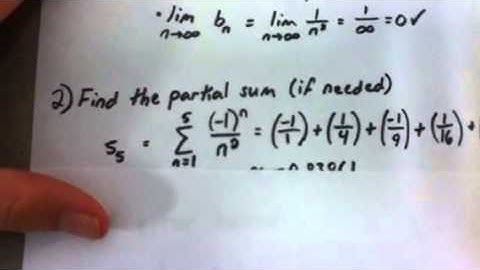 • lim n→∞ bₙ = lim n→∞ 1/n² = 1/∞ = 0 ✓
2) Find the partial sum (if needed)
S₅ = 5 ∑ n=1 (-1)ⁿ/n² = (-1/1) + (1/4) + (-1/9) + (1/16) +